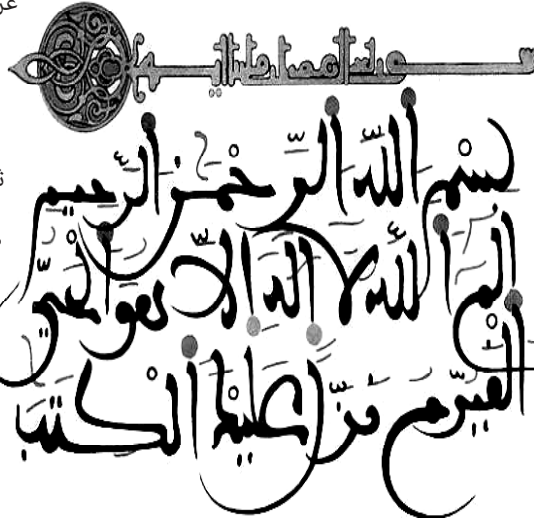 بِسْمِ اللَّهِ الرَّحْمَنِ الرَّحِيمِ
الَمِّ اللَّهُ لَا إِلَهَ إِلَّا هُوَ الْحَيُّ
الْقَيُّومُ نَزَّلَ عَلَيْكَ الْكِتَبَ